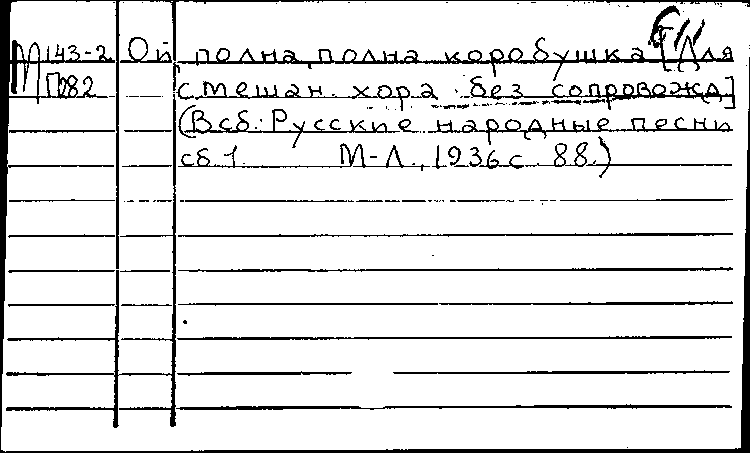 М 143-2 Ой, полна, полна коробушка [Для
П282 смешан. хора без сопровожд]
(В сб.: Русские народные песни
сб 1 М-Л., 1936 с. 88.)